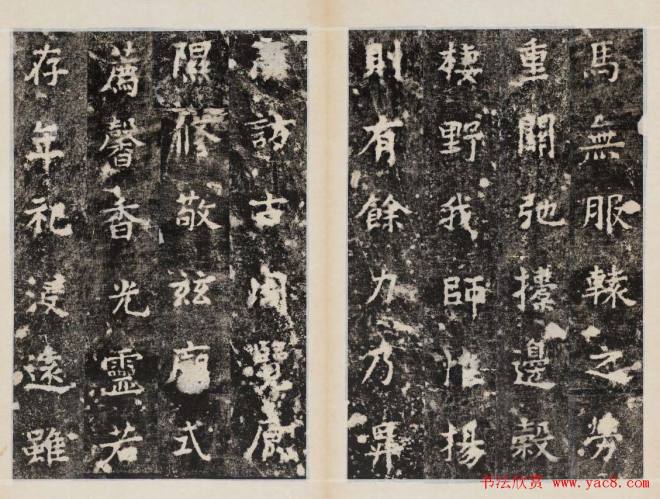 馬無服轅之勞
重關弛邊穀
棲野我師惟揚
則有餘力乃
訪古周覽原
隰修敬茲廟式
薦馨香光靈若
存年祀浸遠雖
书法欣赏 www.yac8.com